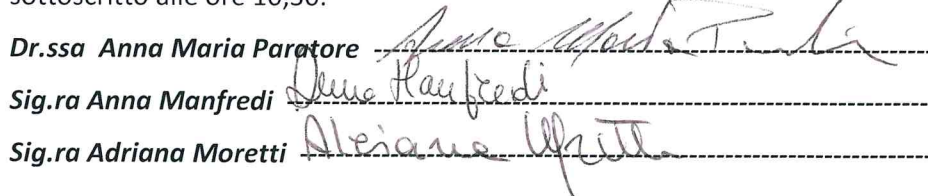 sottoscritto alle ore 16,30.
Dr.ssa Anna Maria Paratore Anna Maria
Sig.ra Anna Manfredi Anna Manfredi
Sig.ra Adriana Moretti Adriana